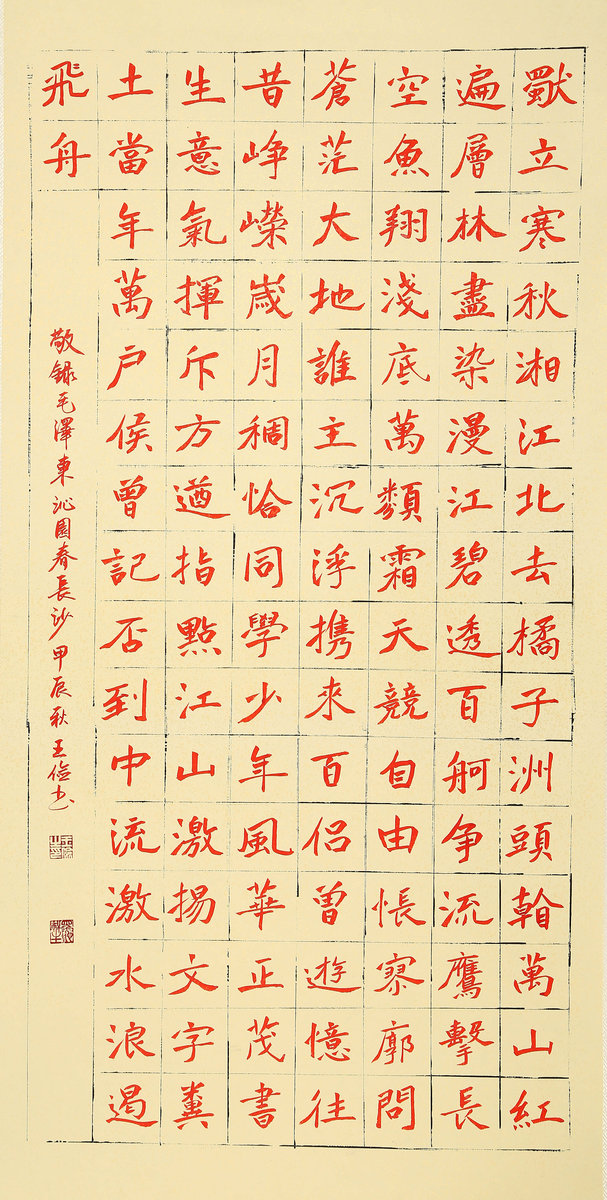 獨立寒秋湘江北去橘子洲頭看萬山紅
遍層林盡染漫江碧透百舸争流鷹擊長
空魚翔淺底萬類霜天競自由悵寥廓問
蒼茫大地誰主沉浮携來百侶曾遊憶往
昔崢嶸歲月稠恰同學少年風華正茂書
生意氣揮斥方遒指點江山激揚文字糞
土當年萬户侯曾記否到中流激水浪遏
飛舟
敬錄毛澤東沁園春長沙甲辰秋王俭书